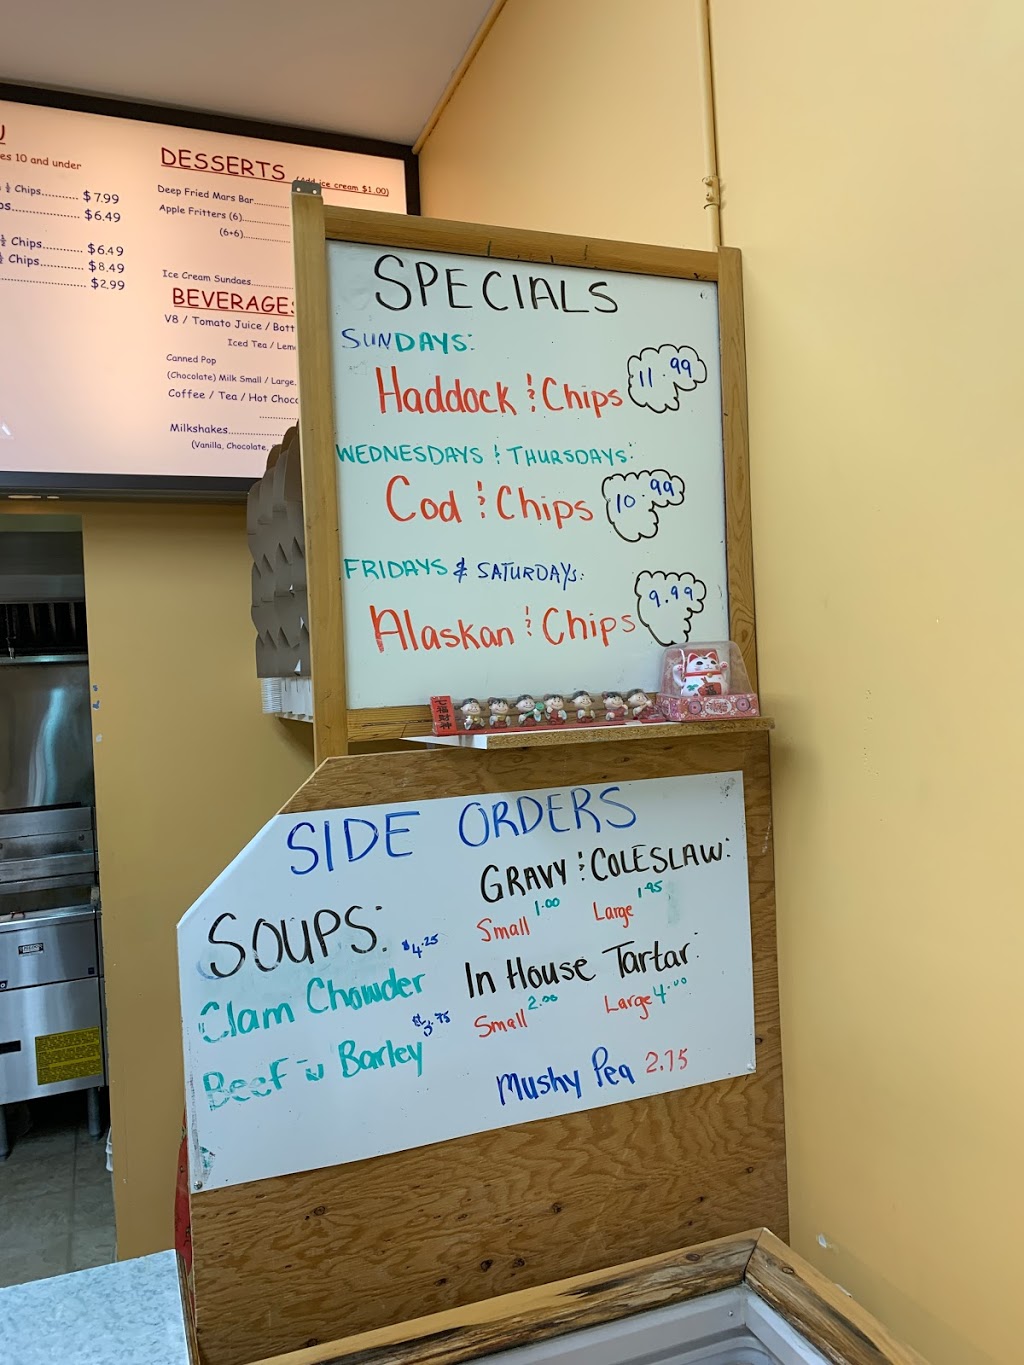 es 10 and under
½ Chips........... $7.99
os................... $6.49
½ Chips........... $6.49
½ Chips........... $8.49
$2.99
DESSERTS (Add ice cream $1.00)
Deep Fried Mars Bar
Apple Fritters (6)
(6+6)
Ice Cream Sundaes
BEVERAGES
V8 / Tomato Juice /
Iced Tea /
Canned Pop
(Chocolate) Milk Small / Large
Coffee / Tea / Hot
Milkshakes
(Vanilla, Chocolate,
SPECIALS
SUNDAYS:
Haddock & Chips 11.99
WEDNESDAYS & THURSDAYS:
Cod & Chips 10.99
FRIDAYS & SATURDAYS:
Alaskan & Chips 9.99
七福財神
SIDE ORDERS
SOUPS:
Clam Chowder $4.25
Beef n Barley $3.75
GRAVY & COLESLAW:
Small 1.00 Large 1.95
In House Tartar:
Small 2.00 Large 4.00
Mushy Pea 2.75